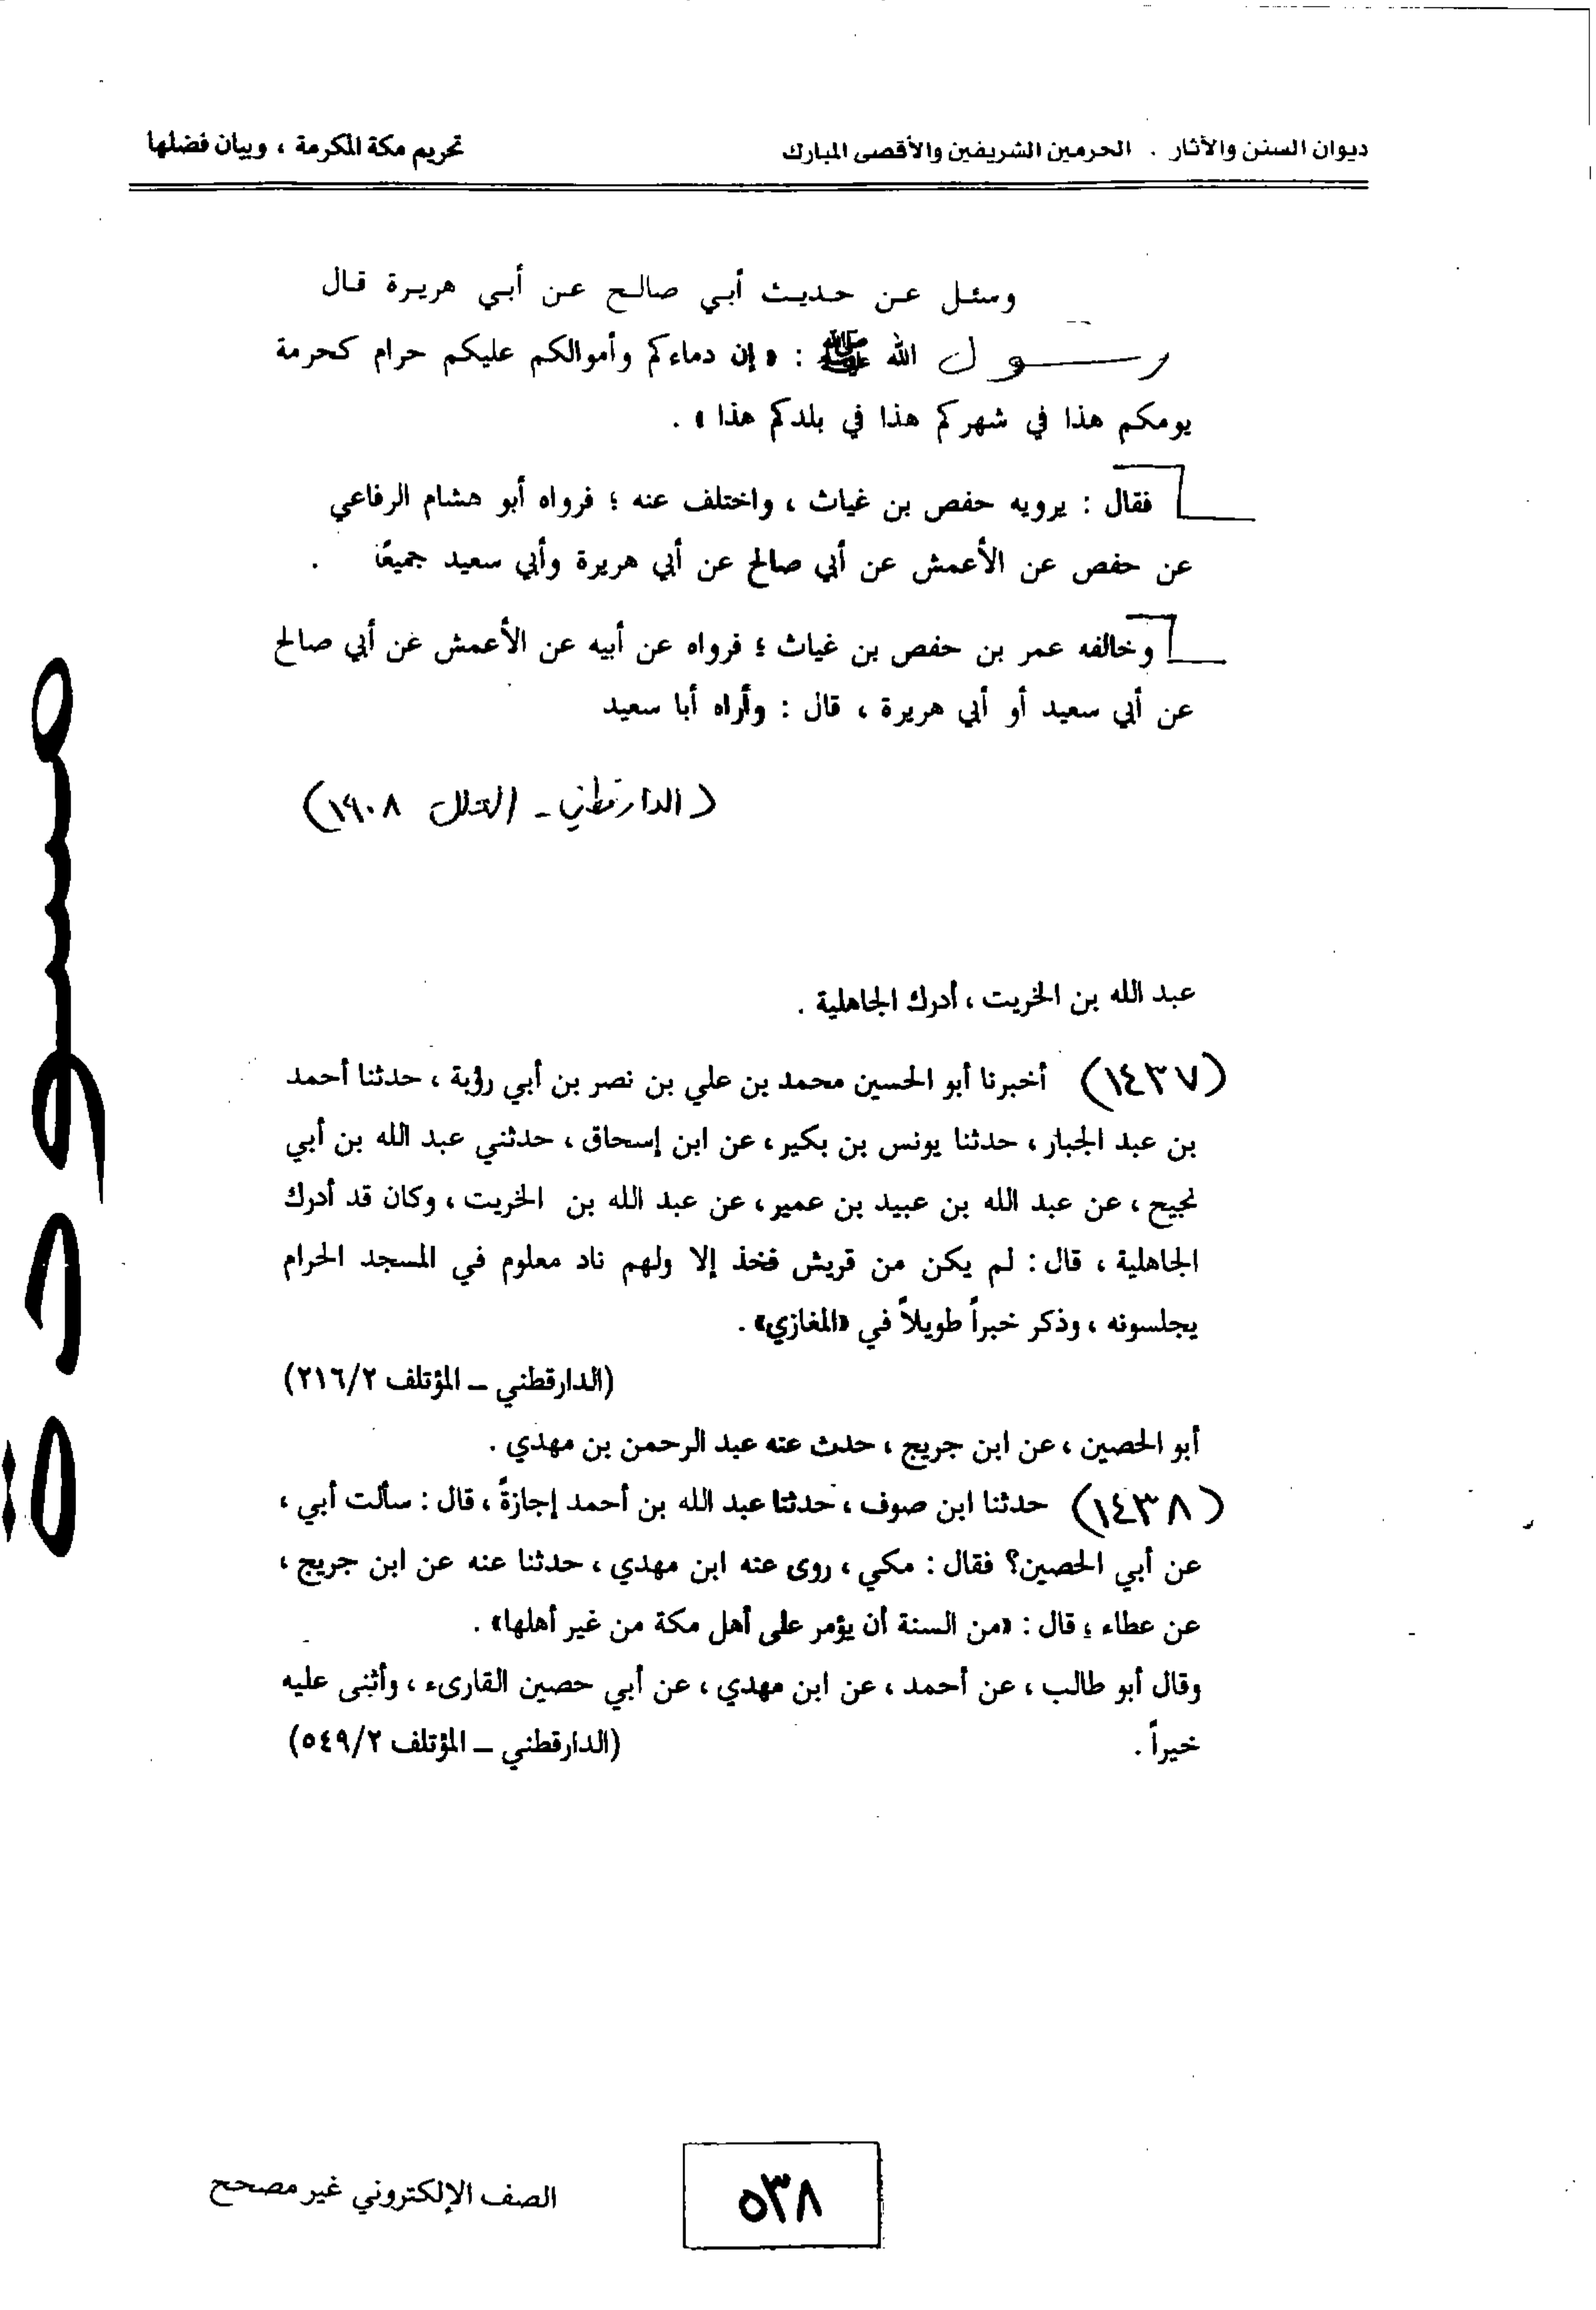 ديوان السنن والآثار . الحرمين الشريفين والأقصى المبارك
تحريم مكة المكرمة ، وبيان فضلها
وسئل عن حديث أبي صالح عن أبي هريرة قال
رسول الله ﷺ : « إن دماءكم وأموالكم عليكم حرام كحرمة
يومكم هذا في شهركم هذا في بلدكم هذا » .
فقال : يرويه حفص بن غياث ، واختلف عنه ؛ فرواه أبو هشام الرفاعي
عن حفص عن الأعمش عن أبي صالح عن أبي هريرة وأبي سعيد جميعًا .
وخالفه عمر بن حفص بن غياث ؛ فرواه عن أبيه عن الأعمش عن أبي صالح
عن أبي سعيد أو أبي هريرة ، قال : وأراه أبا سعيد
(الدارقطني - العلل ١٩٠٨)
عبد الله بن الخريت ، أدرك الجاهلية .
(١٤٣٧) أخبرنا أبو الحسين محمد بن علي بن نصر بن أبي رؤبة ، حدثنا أحمد
بن عبد الجبار ، حدثنا يونس بن بكير ، عن ابن إسحاق ، حدثني عبد الله بن أبي
نجيح ، عن عبد الله بن عبيد بن عمير ، عن عبد الله بن الخريت ، وكان قد أدرك
الجاهلية ، قال : لم يكن من قريش فخذ إلا ولهم ناد معلوم في المسجد الحرام
يجلسونه ، وذكر خبراً طويلاً في «المغازي» .
(الدارقطني – المؤتلف ٢١٦/٢)
أبو الحصين ، عن ابن جريج ، حدث عنه عبد الرحمن بن مهدي .
(١٤٣٨) حدثنا ابن صوف ، حدثنا عبد الله بن أحمد إجازةً ، قال : سألت أبي ،
عن أبي الحصين؟ فقال : مكي ، روى عنه ابن مهدي ، حدثنا عنه عن ابن جريج ،
عن عطاء ؛ قال : «من السنة أن يؤمر على أهل مكة من غير أهلها» .
وقال أبو طالب ، عن أحمد ، عن ابن مهدي ، عن أبي حصين القارىء ، وأثنى عليه
خيراً .
(الدارقطني – المؤتلف ٥٤٩/٢)
مسودة
٥٣٨
الصف الإلكتروني غير مصحح